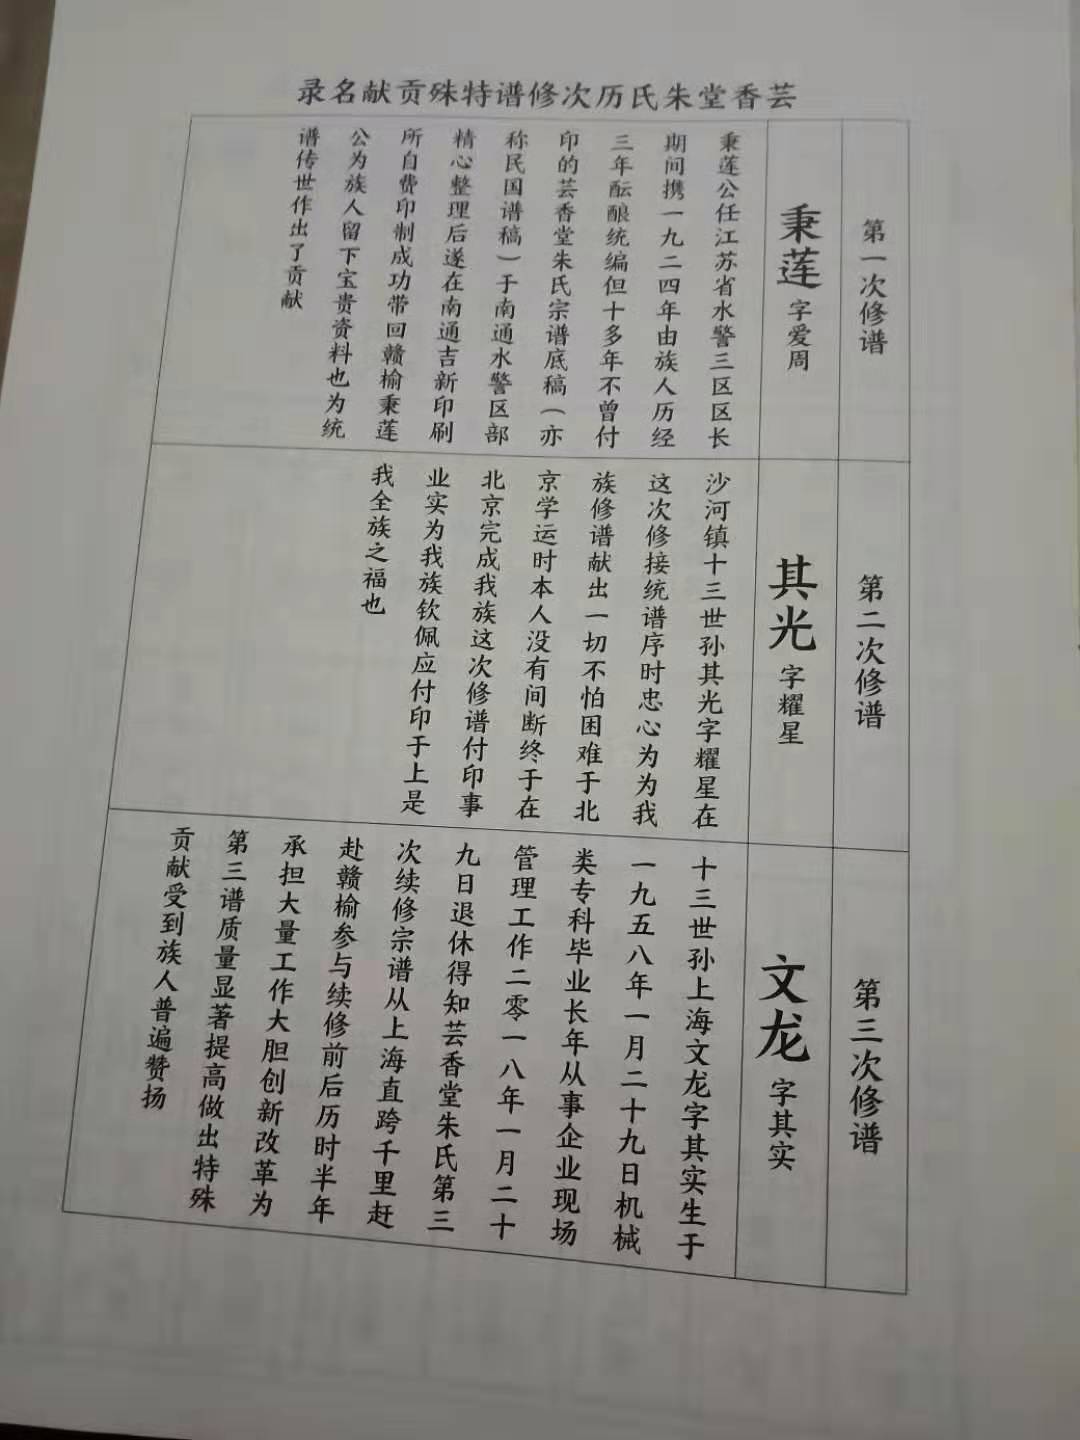 芸香堂朱氏历次修谱特殊贡献名录
第一次修谱
秉莲 字爱周
秉莲公任江苏省水警三区区长
期间携一九二四年由族人历经
三年酝酿统编但十多年不曾付
印的芸香堂朱氏宗谱底稿（亦
称民国谱稿）于南通水警区部
精心整理后遂在南通吉新印刷
所自费印制成功带回赣榆秉莲
公为族人留下宝贵资料也为统
谱传世作出了贡献
第二次修谱
其光 字耀星
沙河镇十三世孙其光字耀星在
这次修接统谱序时忠心为为我
族修谱献出一切不怕困难于北
京学运时本人没有间断终于在
北京完成我族这次修谱付印事
业实为我族钦佩应付印于上是
我全族之福也
第三次修谱
文龙 字其实
十三世孙上海文龙字其实生于
一九五八年一月二十九日机械
类专科毕业长年从事企业现场
管理工作二零一八年一月二十
九日退休得知芸香堂朱氏第三
次续修宗谱从上海直跨千里赶
赴赣榆参与续修前后历时半年
承担大量工作大胆创新改革为
第三谱质量显著提高做出特殊
贡献受到族人普遍赞扬